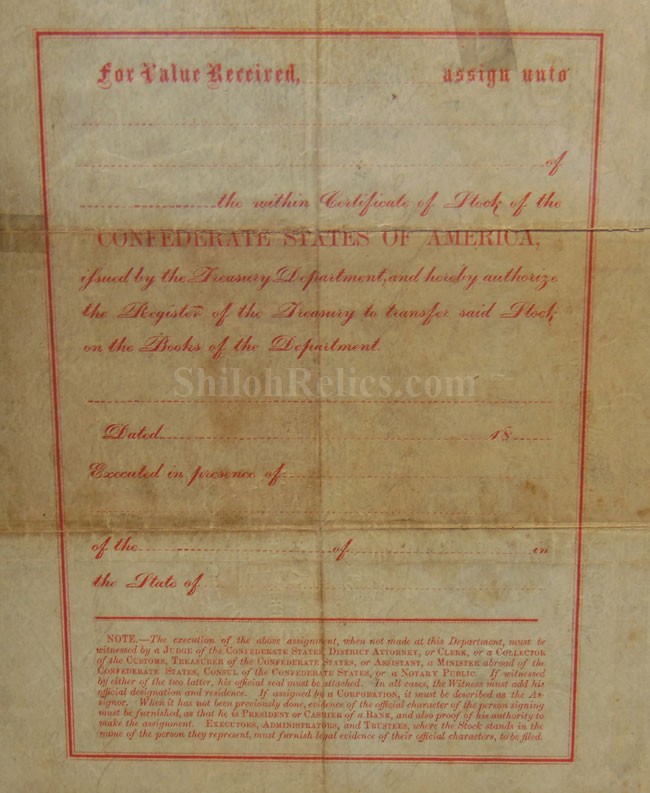 For Value Received, assign unto
of
the within Certificate of Stock of the
CONFEDERATE STATES OF AMERICA,
issued by the Treasury Department, and hereby authorize
the Register of the Treasury to transfer said Stock
on the Books of the Department.
ShilohRelics.com
Dated 18
Executed in presence of
of the of in
the State of
NOTE.—The execution of the above assignment, when not made at this Department, must be
witnessed by a JUDGE OF THE CONFEDERATE STATES, DISTRICT ATTORNEY, OR CLERK, OR A COLLECTOR
OF THE CUSTOMS, TREASURER OF THE CONFEDERATE STATES, OR ASSISTANT, A MINISTER abroad of the
CONFEDERATE STATES, CONSUL OF THE CONFEDERATE STATES, or a NOTARY PUBLIC. If witnessed
by either of the two latter, his official seal must be attached. In all cases, the Witness must add his
official designation and residence. If assigned by a CORPORATION, it must be described as the As-
signor. When it has not been previously done, evidence of the official character of the person signing
must be furnished, as that he is PRESIDENT OR CASHIER OF A BANK, and also proof of his authority to
make the assignment. EXECUTORS, ADMINISTRATORS, and TRUSTEES, where the Stock stands in the
name of the person they represent, must furnish legal evidence of their official characters, to be filed.